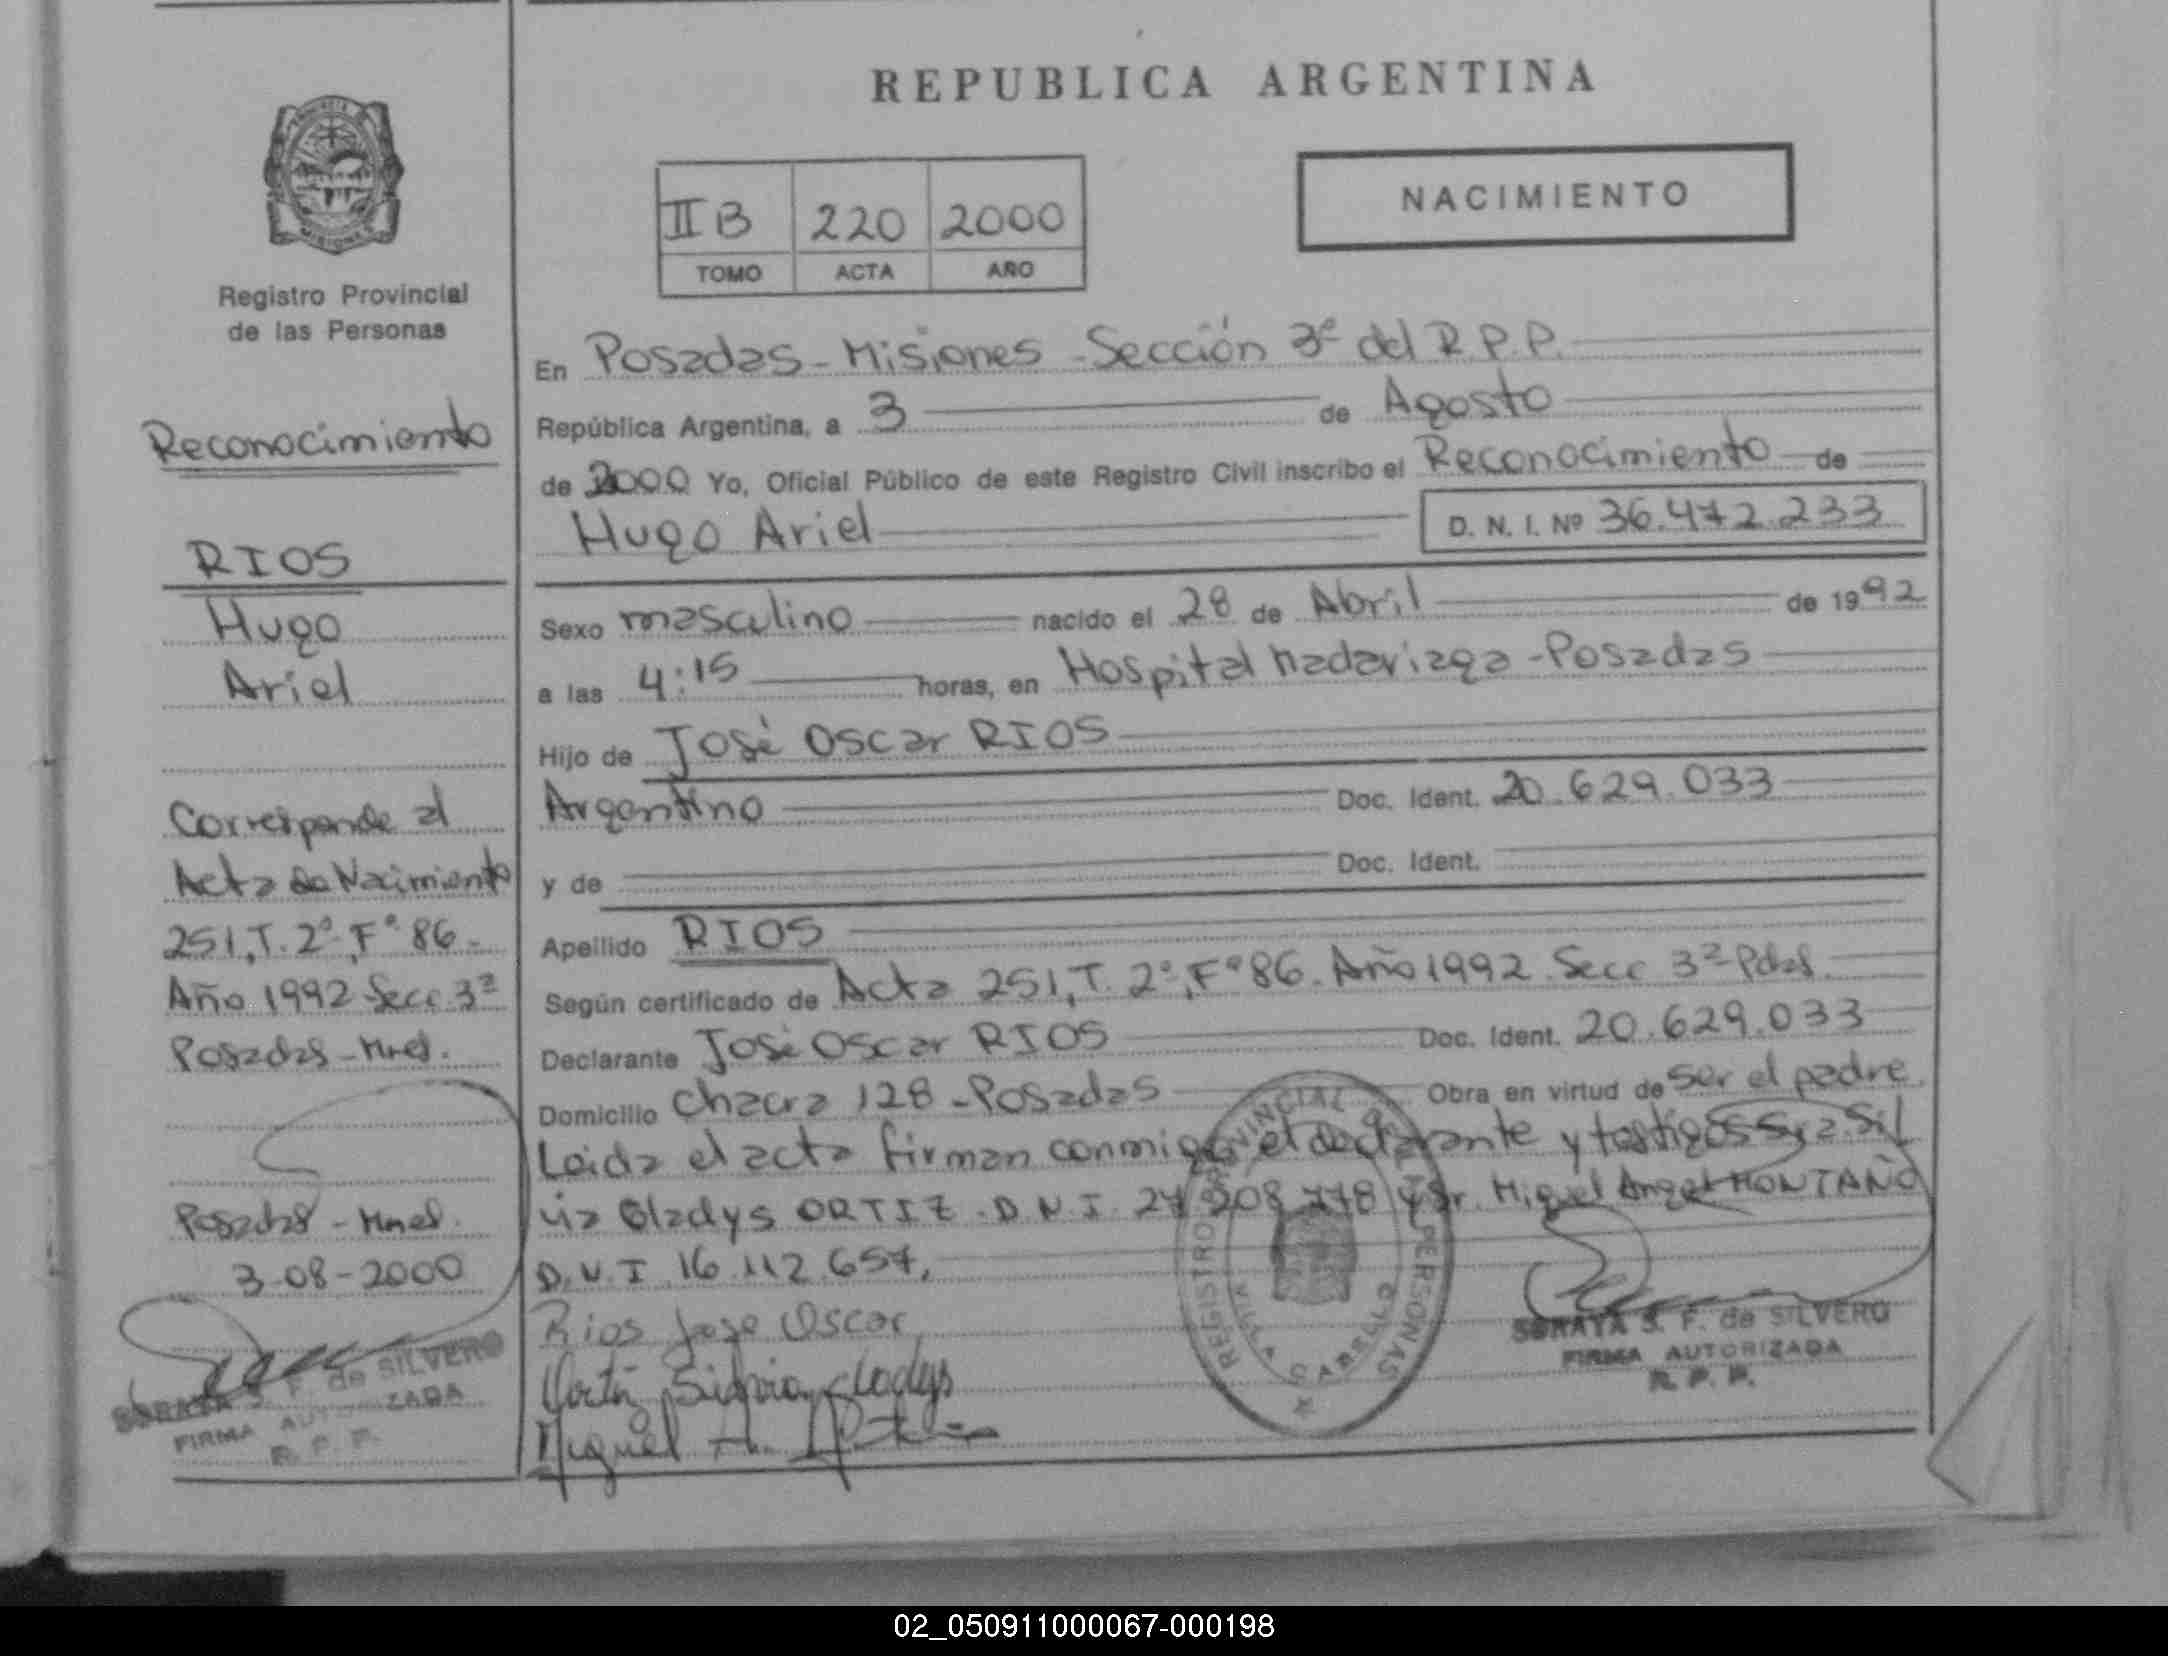 REPUBLICA ARGENTINA
NACIMIENTO
II B 220 2000
TOMO ACTA AÑO
MISIONES
Registro Provincial
de las Personas
Reconocimiento
RIOS
Hugo
Ariel
Corresponde al
Acta de Nacimiento
251, T. 2º, Fº 86-
Año 1992 Secc. 3ª
Posadas - Mnes.
Posadas - Mnes.
3-08-2000
SORAYA S. F. de SILVERO
FIRMA AUTORIZADA
R. P. P.
En Posadas - Misiones - Sección 3º del R.P.P.
República Argentina, a 3 de Agosto
de 2000 Yo, Oficial Público de este Registro Civil inscribo el Reconocimiento de
Hugo Ariel D. N. I. Nº 36.472.233
Sexo masculino nacido el 28 de Abril de 1992
a las 4:15 horas, en Hospital Madariaga - Posadas
Hijo de José Oscar RIOS
Argentino Doc. Ident. 20.629.033
y de Doc. Ident.
Apellido RIOS
Según certificado de Acta 251, T. 2º, Fº 86. Año 1992 Secc 3ª Pdas.
Declarante José Oscar RIOS Doc. Ident. 20.629.033
Domicilio Chacra 128 - Posadas Obra en virtud de ser el padre.
Leida el acta firman conmigo el declarante y testigos Sra. Sil
via Gladys ORTIZ. D.N.I. 27.208.778 y Sr. Miguel Angel MONTAÑO
D.N.I 16.112.657,
Rios Jose Oscar
Gladys
Miguel A.
REGISTRO PROVINCIAL DE LAS PERSONAS
SORAYA S. F. de SILVERO
FIRMA AUTORIZADA
R. P. P.
02_050911000067-000198